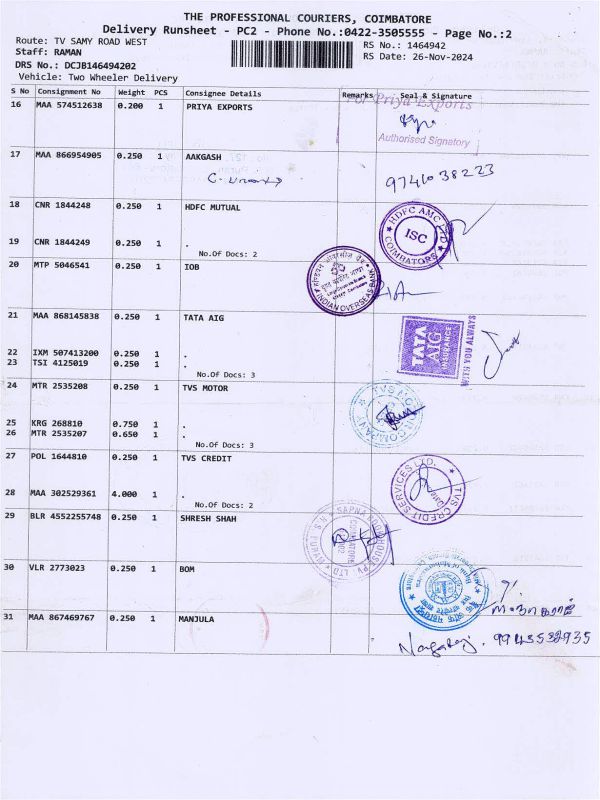 THE PROFESSIONAL COURIERS, COIMBATORE
Delivery Runsheet - PC2 - Phone No.:0422-3505555 - Page No.:2
Route: TV SAMY ROAD WEST
RS No.: 1464942
Staff: RAMAN
RS Date: 26-Nov-2024
DRS No.: DCJB146494202
Vehicle: Two Wheeler Delivery
S No Consignment No Weight PCS Consignee Details Remarks Seal & Signature
16 MAA 574512638 0.200 1 PRIYA EXPORTS
For Priya Exports
Authorised Signatory
17 MAA 866954905 0.250 1 AAKGASH
9741038223
18 CNR 1844248 0.250 1 HDFC MUTUAL
HDFC AMC LTD
ISC
COIMBATORE
19 CNR 1844249 0.250 1 .
No.Of Docs: 2
20 MTP 5046541 0.250 1 IOB
INDIAN OVERSEAS BANK
21 MAA 868145838 0.250 1 TATA AIG
TATA
AIG
INSURANCE
WITH YOU ALWAYS
22 IXM 507413200 0.250 1 .
23 TSI 4125019 0.250 1 .
No.Of Docs: 3
24 MTR 2535208 0.250 1 TVS MOTOR
TVS MOTOR COMPANY
25 KRG 268810 0.750 1 .
26 MTR 2535207 0.650 1 .
No.Of Docs: 3
27 POL 1644810 0.250 1 TVS CREDIT
TVS CREDIT SERVICES LTD.
28 MAA 302529361 4.000 1 .
No.Of Docs: 2
29 BLR 4552255748 0.250 1 SHRESH SHAH
30 VLR 2773023 0.250 1 BOM
31 MAA 867469767 0.250 1 MANJULA
Nagaraj. 9943532935